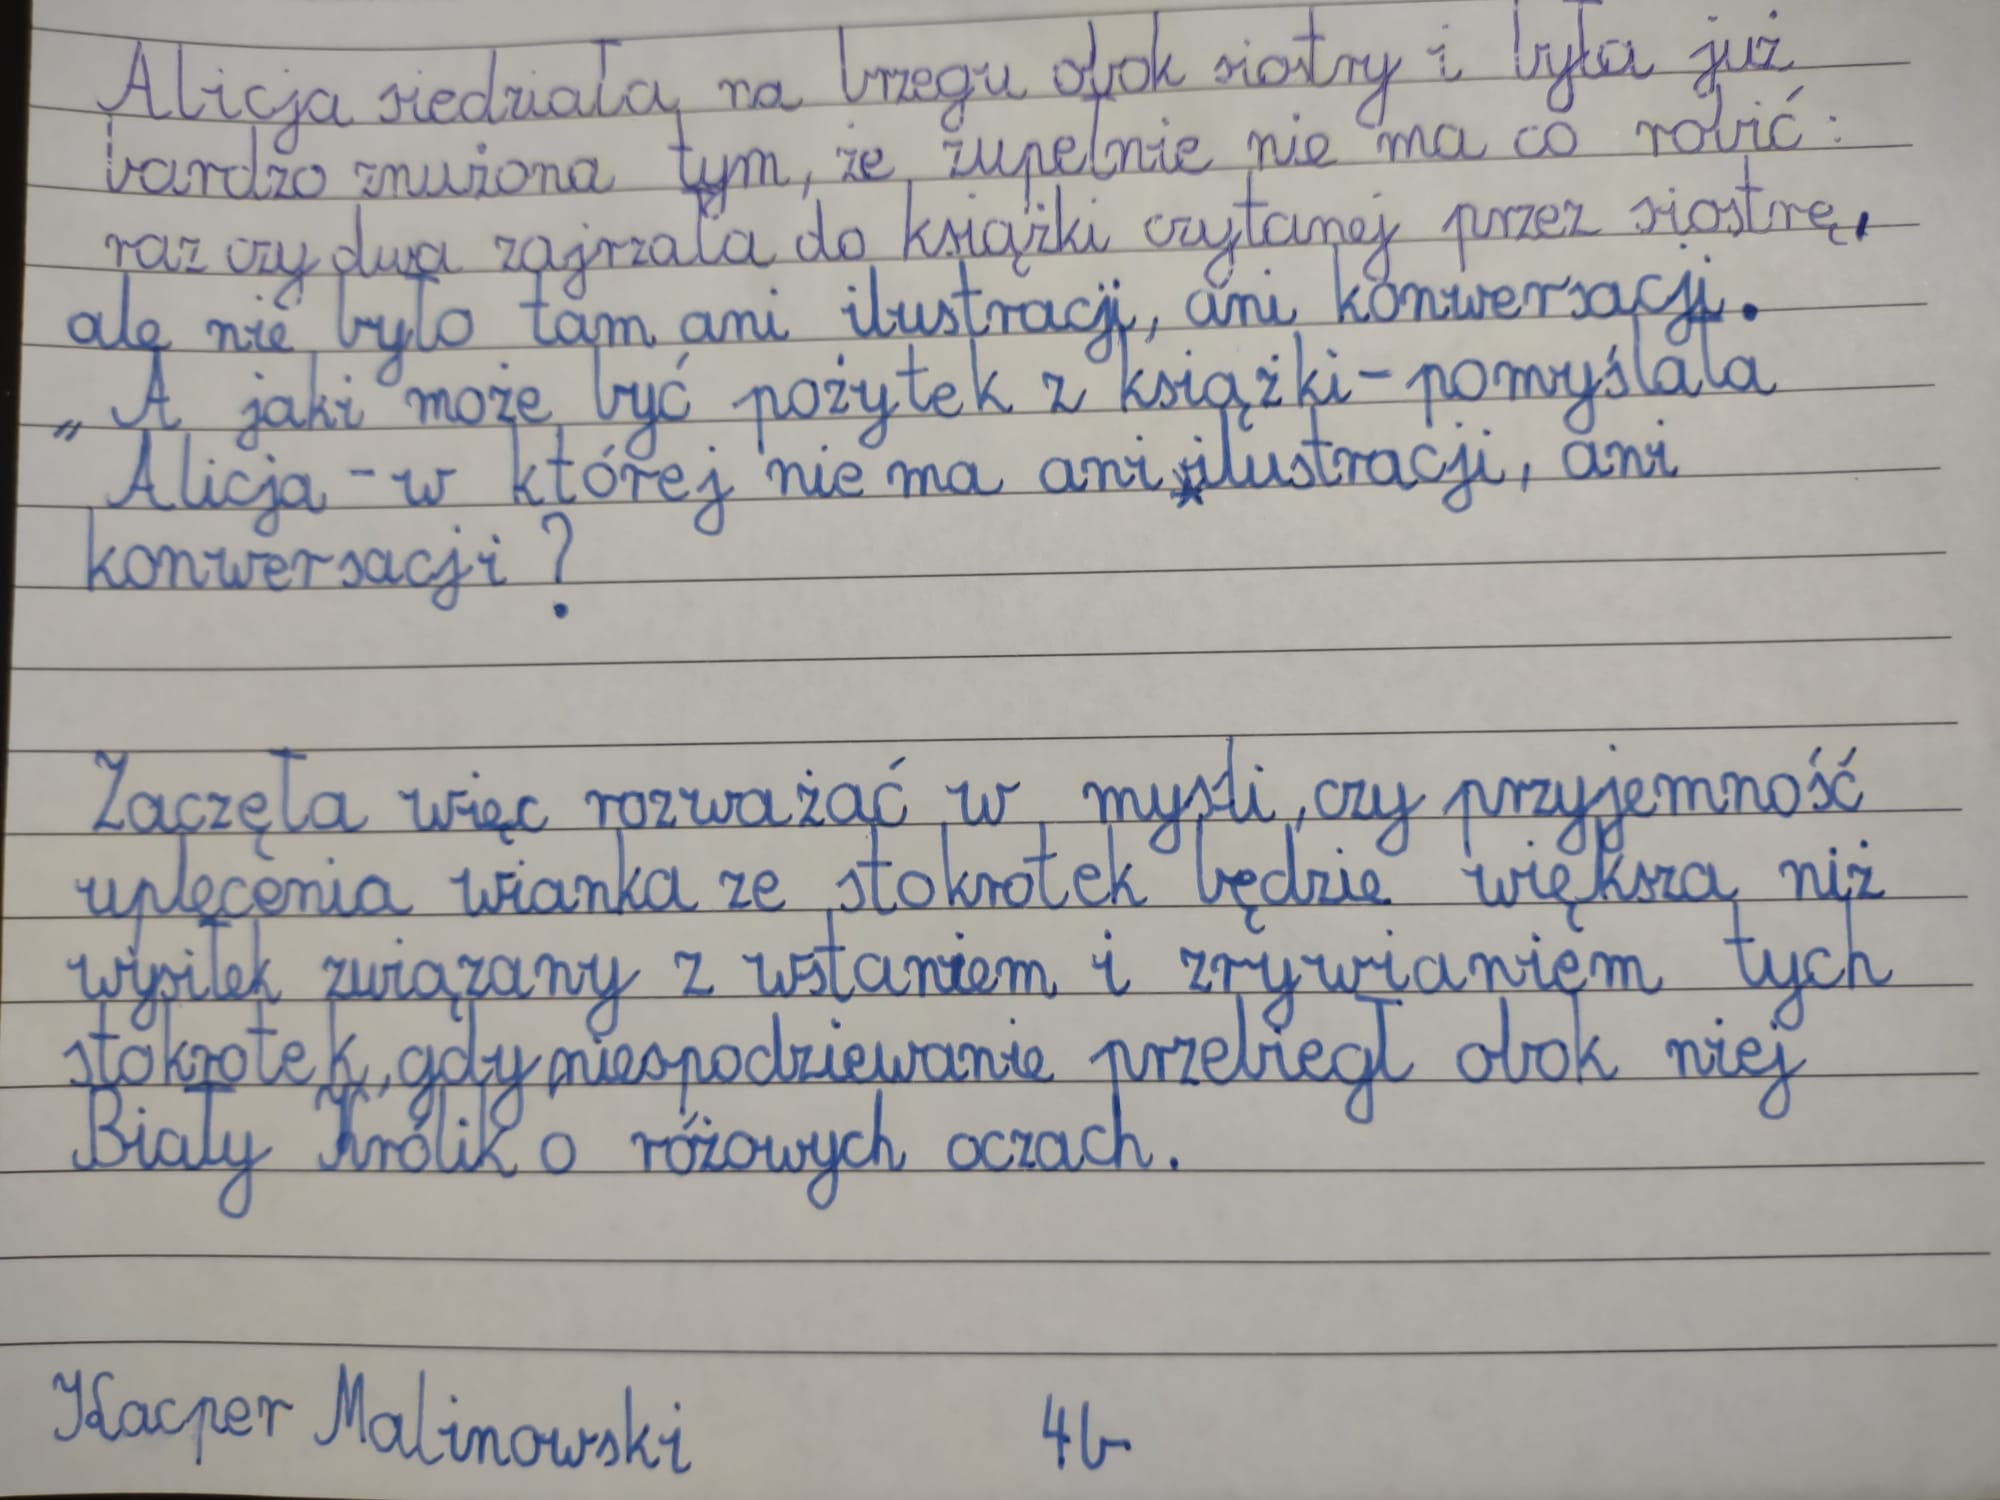 Alicja siedziała na brzegu obok siostry i była już
bardzo znużona tym, że zupełnie nie ma co robić:
raz czy dwa zajrzała do książki czytanej przez siostrę,
ale nie było tam ani ilustracji, ani konwersacji.
„A jaki może być pożytek z książki - pomyślała
Alicja - w której nie ma ani ilustracji, ani
konwersacji?
Zaczęła więc rozważać w myśli, czy przyjemność
uplecenia wianka ze stokrotek będzie większa niż
wysiłek związany z wstaniem i zrywianiem tych
stokrotek, gdy niespodziewanie przebiegł obok niej
Biały Królik o różowych oczach.
Kacper Malinowski 4b